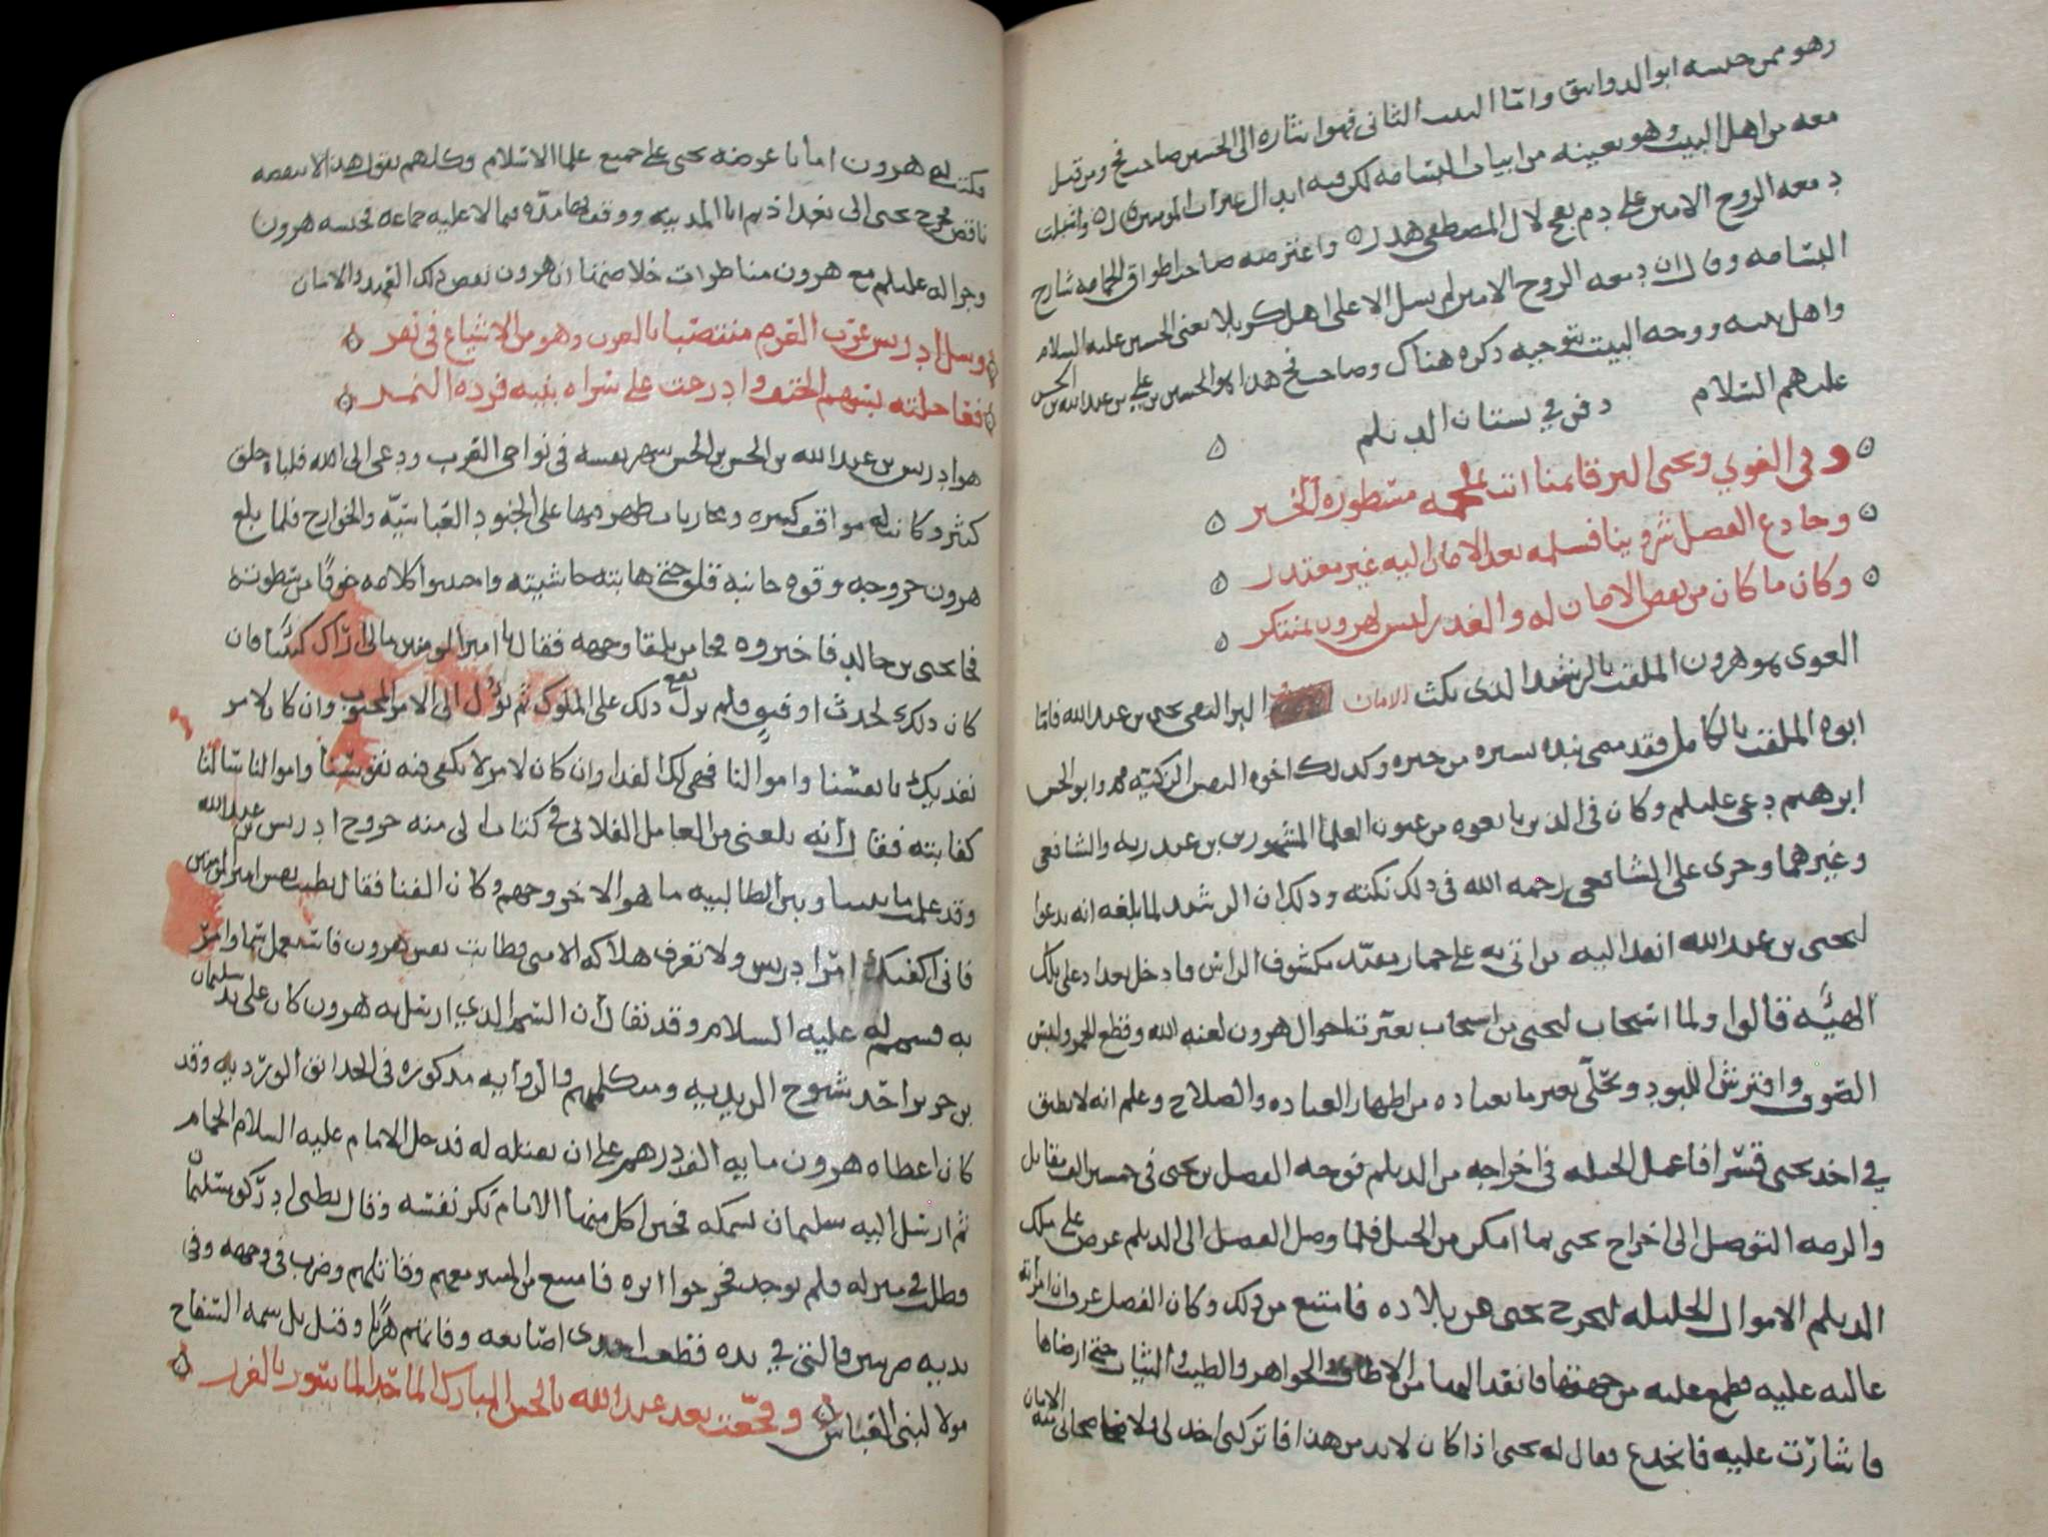 وهو ممن حبسه ابو الدوانيق واما البيت الثاني فهو اشاره الى الحسين صاحب فخ ومن قتل
معه من اهل البيت وهو بعينه من ابيات البسامه لكن فيه ابدال
دمعه الروح الامين على دم بفخ لال المصطفى هدر واعترضه صاحب اطواق الحمامه شارح
البسامه وقال ان دمعه الروح الامين لم يسل الا على اهل كربلا يعني الحسين عليه السلام
واهل بيته ووجه البيت بتوجيه ذكره هناك وصاحب فخ هذا هو الحسين بن علي بن عبد الله بن الحسن
عليهم السلام دفن في بستان الديلم
وفي الغوي ويحيى البر قايمنا انت مسطوره الخبر
وخادع الفصل بعد الامان اليه غير معتدر
وكان ما كان من نقص الامان له والغدر ليس لهرون بمنتكر
الغوى هو هرون الملقب بالرشيد الذي نكث الامان البر التقي يحيى بن عبد الله فاما
ابوه الملقب بالكامل فقد مضى نبذه يسيره من خبره وكذلك اخوه النفس الزكيه محمد وابو الحسن
ابرهيم دعى عليلم وكان في الذين بايعوه من عيون العلما المشهورين بن عبد ربه والشافعي
وغيرهما وجرى على الشافعي رحمه الله في ذلك نكته وذلك ان الرشيد لما بلغه انه يدعوا
ليحيى بن عبد الله انفذ اليه من اتى به على حمار مقيد مكشوف الراس فادخل بغداد على تلك
الهيئه قالوا ولما استجاب ليحيى من استجاب تغيرت احوال هرون لعنه الله وقطع الخمر ولبس
الصوف وافترش اللبود وتحلى بغير ما يعتاده من اظهار العباده والصلاح وعلم انه لا يطيق
في اخذ يحيى قسرا فاعمل الحيله في اخراجه من الديلم فوجه الفضل بن يحيى في خمسين الف مقاتل
والزمه التوصل الى اخراج يحيى بما امكن من الحيل فلما وصل الفضل الى الديلم عرض على ملك
الديلم الاموال الجليله ليخرج يحيى من بلاده فامتنع من ذلك وكان الفضل عرف ان امراته
غالبه عليه فطمع عليه من جهتها فانفذ اليها من الالطاف والجواهر والطيب والثياب حتى ارضاها
فاشارت عليه فانخدع فقال له يحيى اذا كان لا بد من هذا فاتركني اخذ لي الامان منه
فكتب له هرون امانا عرضه يحيى على جميع علما الاسلام وكلهم يقول هذا لا ينقضه
ناقض فخرج يحيى الى بغداذ ثم اتا المدينه ووقف بها مده فمالا عليه جماعه فحبسه هرون
وجرا له عليلم مع هرون مناظرات خلاصتها ان هرون نقض ذلك العهد والامان
وسل ادريس غرب العزم منتصبا بالغرب وهو من الاشياع في نفر
هو ادريس بن عبد الله بن الحسن بن الحسن شهر نفسه في نواحي الغرب ودعى الى الله فلباه خلق
كثير وكانت له مواقف كثيره ومحاربات ظهر فيها على الجنود العباسيه والخوارج فلما بلغ
هرون خروجه وقوه جانبه قلق حتى هابته حاشيته واحبسوا كلامه خوفا من سطوته
فجا يحيى بن خالد فاخبروه فجا من تلقا وجهه فقال يا امير المومنين مالي اراك كئيبا فان
كان ذلك لحدث او فتق فلم يزل يقع ذلك على الملوك ثم يؤل الى الامر المحبوب وان كان لامر
نفديك بانفسنا واموالنا فهي لك الفدا وان كان لامر لا يكفي فيه نفوسنا واموالنا سالنا
كفايته فقال انه بلغني من العامل الفلاني في كتاب الى منه خروج ادريس بن عبد الله
وقد علمت ما بيننا وبين الطالبيه ما هو الا خروجهم وكان الفنا فقال يطيب نفس امير المومنين
فاني اكفيك امر ادريس ولا تعرف هلاكه الا مني فطابت نفس هرون فاستعمل سما وامر
به فسم له عليه السلام وقد يقال ان السم الذي ارسل به هرون كان على يد سليمان
بن جرير احد شيوخ الزيديه ومتكلميهم والروايه مذكوره في الحدائق الورديه وقد
كان اعطاه هرون مايه الف درهم على ان يقتله له فدخل الامام عليه السلام الحمام
ثم ارسل اليه سليمان بسمكه فحين اكل منها الامام نكر نفسه وقال بطني ادركو سليمان
وطلب في منزله فلم يوجد فخرجوا اثره فامتنع من المسير معهم وقاتلهم وضرب في وجهه وفي
يديه ضربتين والتي في يده فقطعت احدى اصابعه وفاتهم هربا وقيل بل سمه الشماخ
مولا لبني العباس وفجعت بعد عبد الله بالحسن المبارك الماجد الماسور بالغرر